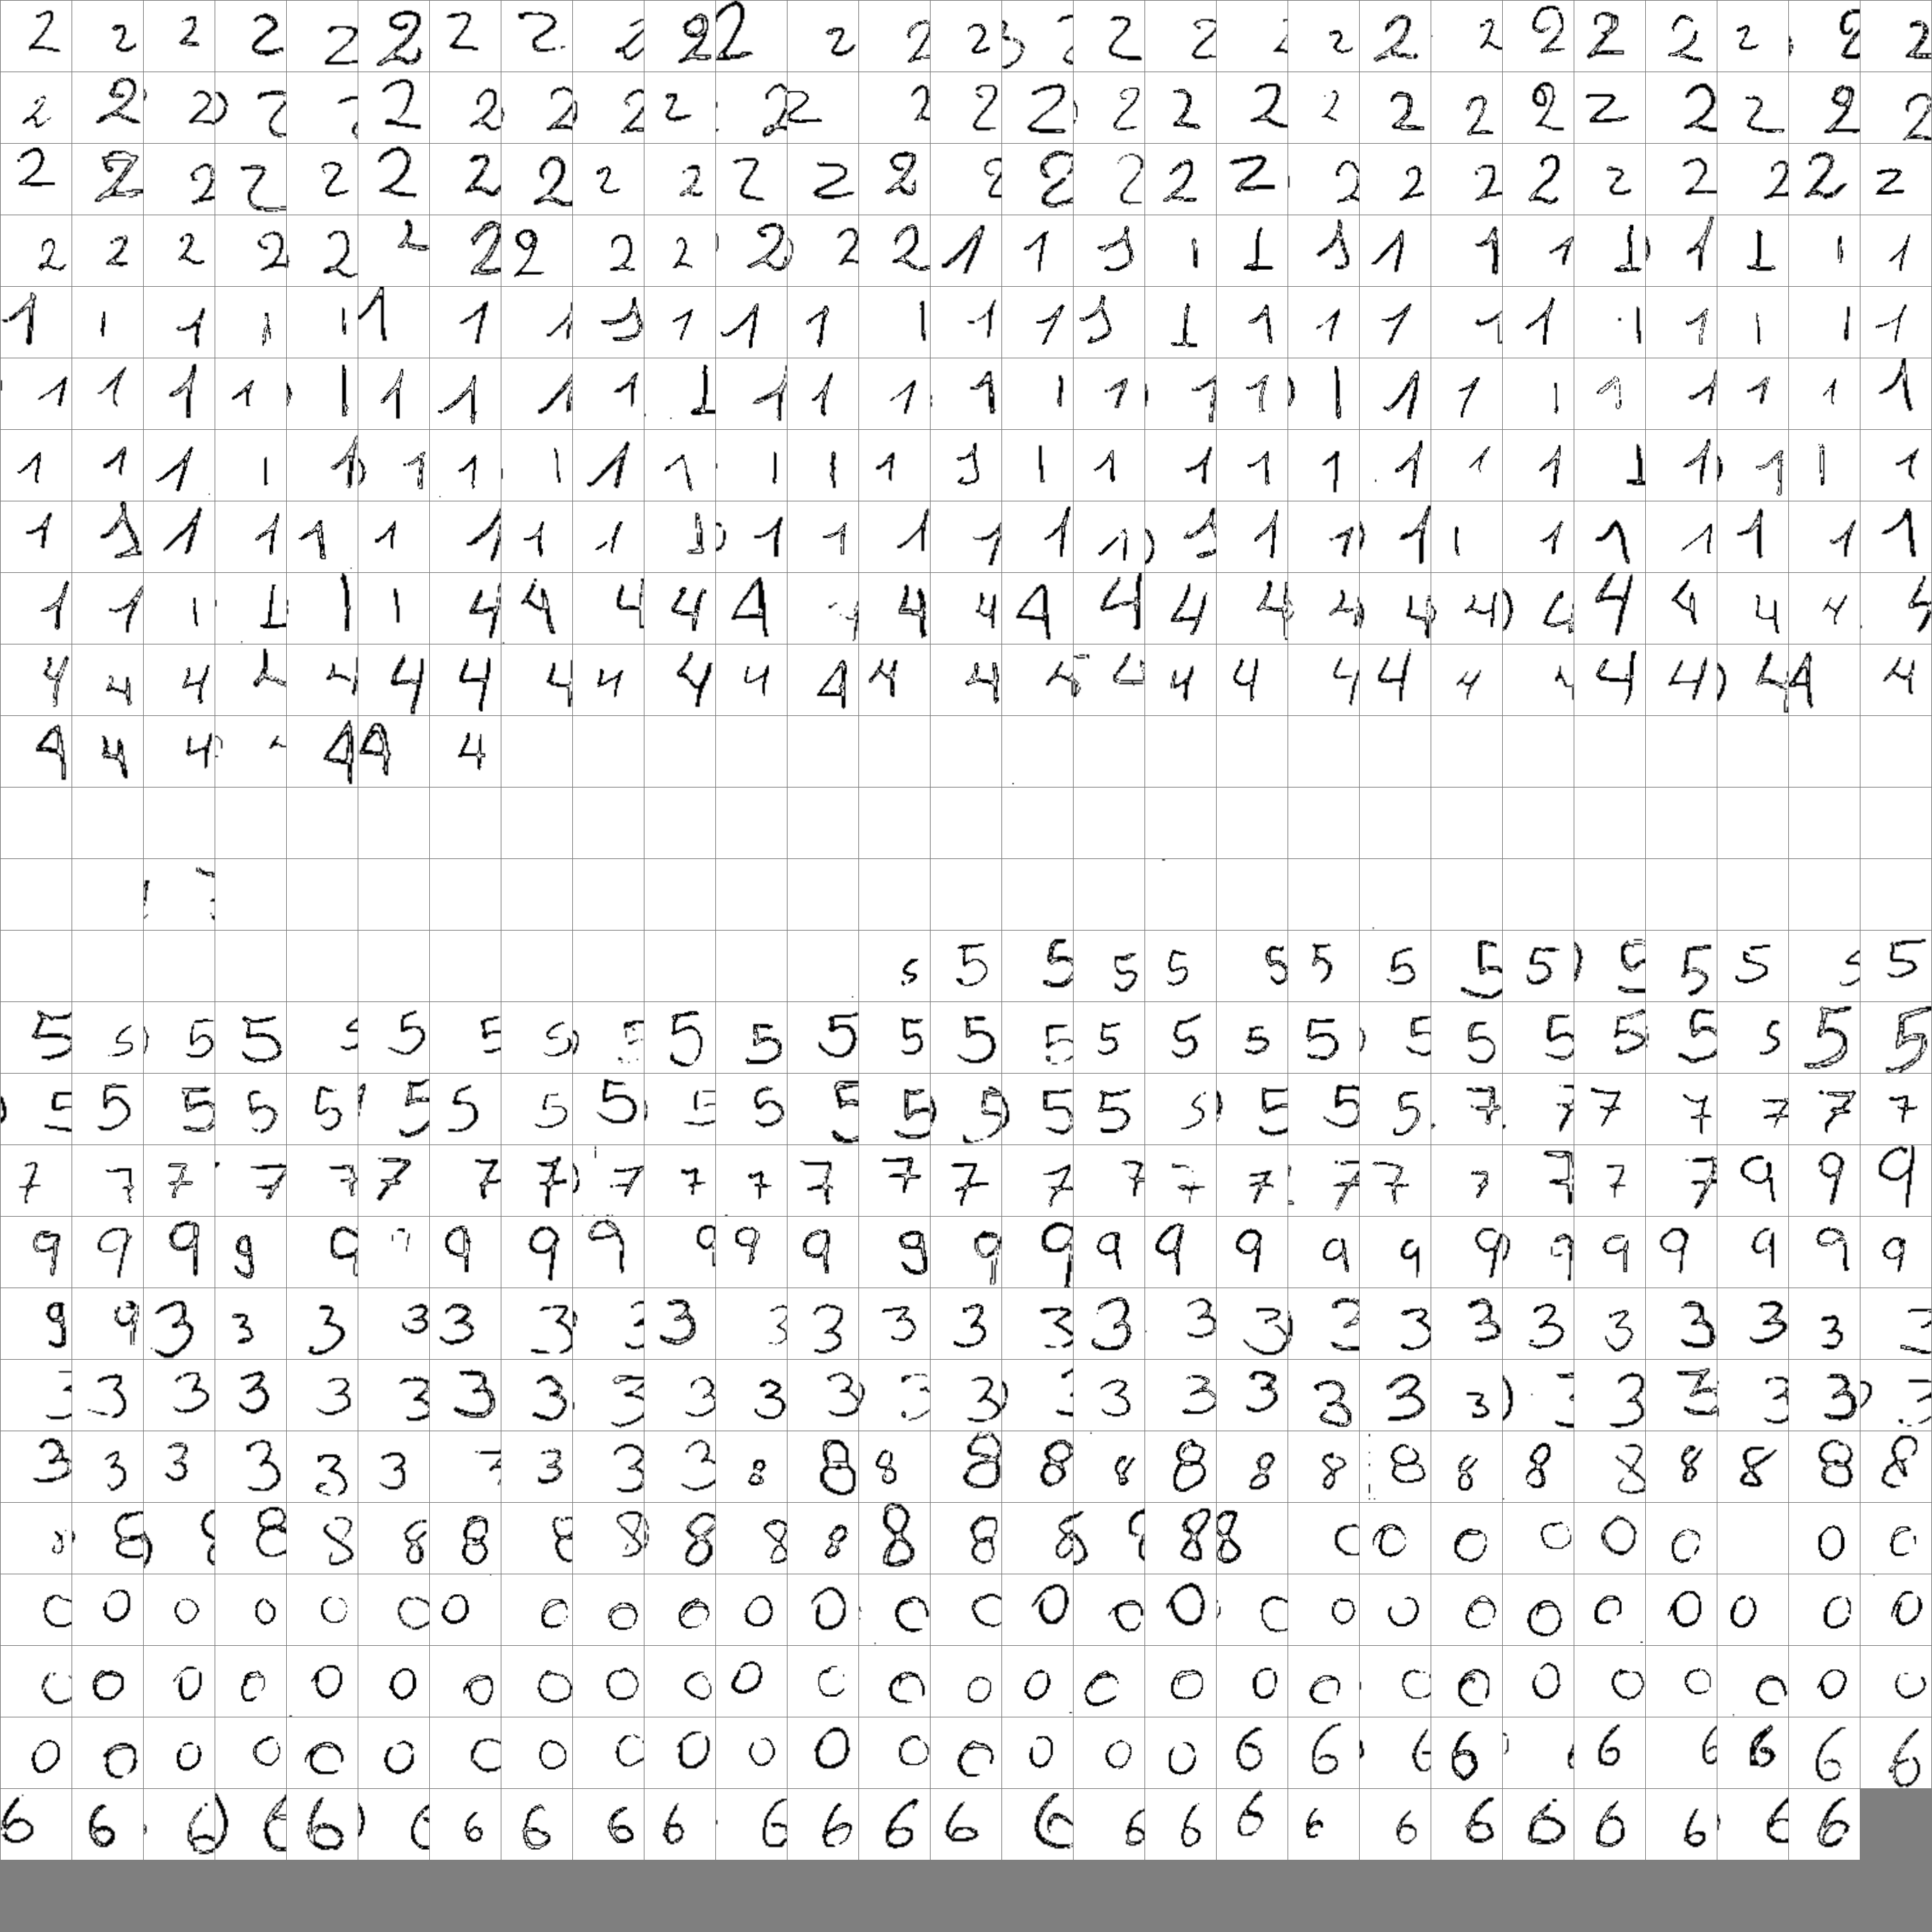 2 2 2 2 2 2 2 2 2 2 2 2 2 2 2 2 2 2 2 2 2 2 2 2 2 2
2 2 2 2 2 2 2 2 2 2 2 2 2 2 2 2 2 2 2 2 2 2 2 2 2 2
2 2 2 2 2 2 2 2 2 2 2 2 2 2 2 2 2 2 2 2 2 2 2 2 2 2 2
2 2 2 2 2 2 2 2 2 2 2 2 2 1 1 1 1 1 1 1 1 1 1 1 1 1 1
1 1 1 1 1 1 1 1 1 1 1 1 1 1 1 1 1 1 1 1 1 1 1 1 1 1 1
1 1 1 1 1 1 1 1 1 1 1 1 1 1 1 1 1 1 1 1 1 1 1 1 1 1 1
1 1 1 1 1 1 1 1 1 1 1 1 1 1 1 1 1 1 1 1 1 1 1 1 1 1 1
1 1 1 1 1 1 1 1 1 1 1 1 1 1 1 1 1 1 1 1 1 1 1 1 1 1 1
1 1 1 1 1 1 4 4 4 4 4 4 4 4 4 4 4 4 4 4 4 4 4 4 4 4 4
4 4 4 4 4 4 4 4 4 4 4 4 4 4 4 4 4 4 4 4 4 4 4 4 4 4 4
4 4 4 4 4 4
5 5 5 5 5 5 5 5 5 5 5 5 5 5 5
5 5 5 5 5 5 5 5 5 5 5 5 5 5 5 5 5 5 5 5 5 5 5 5 5 5 5
5 5 5 5 5 5 5 5 5 5 5 5 5 5 5 5 5 5 5 5 7 7 7 7 7 7 7
7 7 7 7 7 7 7 7 7 7 7 7 7 7 7 7 7 7 7 7 7 7 7 7 9 9 9
9 9 9 9 9 9 9 9 9 9 9 9 9 9 9 9 9 9 9 9 9 9 9 9 9 9 9
9 9 3 3 3 3 3 3 3 3 3 3 3 3 3 3 3 3 3 3 3 3 3 3 3 3 3
3 3 3 3 3 3 3 3 3 3 3 3 3 3 3 3 3 3 3 3 3 3 3 3 3 3 3
3 3 3 3 3 3 3 3 3 3 8 8 8 8 8 8 8 8 8 8 8 8 8 8 8 8 8
8 8 8 8 8 8 8 8 8 8 8 8 8 8 8 8 8 8 0 0 0 0 0 0 0 0
0 0 0 0 0 0 0 0 0 0 0 0 0 0 0 0 0 0 0 0 0 0 0 0 0 0 0
0 0 0 0 0 0 0 0 0 0 0 0 0 0 0 0 0 0 0 0 0 0 0 0 0 0 0
0 0 0 0 0 0 0 0 0 0 0 0 0 0 0 0 0 6 6 6 6 6 6 6 6 6
6 6 6 6 6 6 6 6 6 6 6 6 6 6 6 6 6 6 6 6 6 6 6 6 6 6